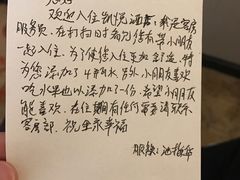 您好
欢迎入住凯悦酒店：我是客房
服务员，在打扫时看见您有带小朋友
一起入住。为了使您入住更加舒适，特
为您添加了牛奶水另外小朋友喜欢
吃水果也以添加了一份，希望小朋友
能喜欢，在住期有任何需要请联系
客房部，祝全家幸福
服务：池